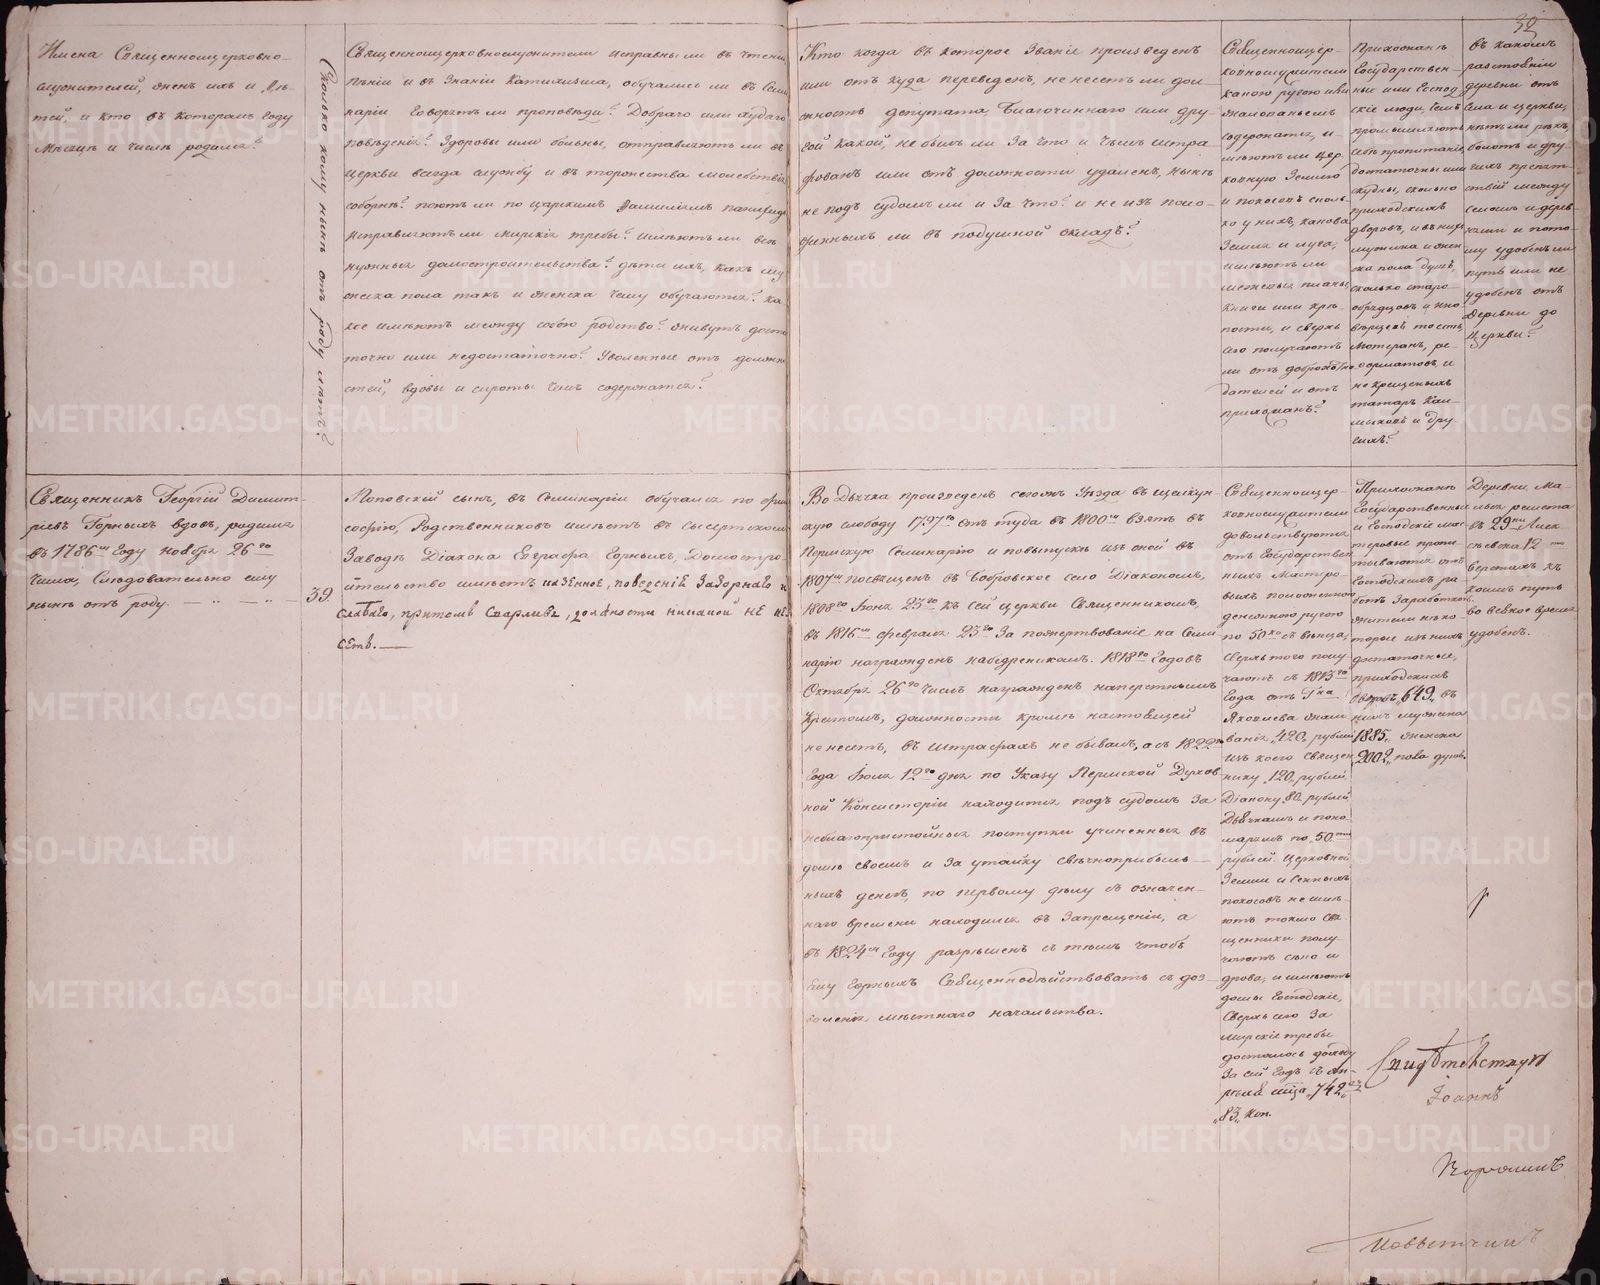 39
Имена Священноцерковно-
служителей, женъ ихъ и дѣ-
тей, и кто въ которомъ году
мѣсяцѣ и числѣ родился?
Сколько кому нынѣ отъ роду лѣтъ?
Священноцерковнослужители исправны ли въ чтеніи
пѣніи и въ знаніи Катихизиса, обучались ли въ Семи
наріи Говорятъ ли проповѣди? Добраго или худаго
поведенія? Здоровы или больны, отправляютъ ли въ
церкви всегда службу и въ торжества молебствія
соборнѣ? поютъ ли по царскимъ Фамиліямъ панихиды
исправляютъ ли мирскія требы? имѣютъ ли всѣ
нужныя домостроительства? дѣти ихъ, какъ му
жеска пола такъ и женска чему обучаются? ка
кое имѣютъ между собою родство? живутъ доста
точно или недостаточно? Уволенные отъ должно
стей, вдовы и сироты чемъ содержатся?
Кто когда въ которое званіе произведенъ
или откуда переведенъ, не несетъ ли дол
жность депутата, Благочиннаго или дру
гой какой, не былъ ли за что и чѣмъ штра
фованъ или отъ должности удаленъ, нынѣ
не подъ судомъ ли и за что? и не изъ поло
женныхъ ли въ подушной окладъ?
Священноцер-
ковнослужители
какою ругою или
жалованьемъ
содержатся, и-
мѣютъ ли цер
ковную землю
и покосовъ сколь
ко у нихъ, какова
земля и луга,
имѣютъ ли
межевые планы,
книги или крѣ
пости, и сверхъ
сего получаютъ
ли отъ доброхотно
дателей и отъ
прихожанъ?
Прихожанъ
Государствен-
ные или Господ
скіе люди, чемъ
промышляютъ
себѣ пропитаніе,
достаточны или
скудны, сколько
приходскихъ
дворовъ, и въ нихъ
мужеска и жен
ска пола душъ,
сколько старо-
обрядцовъ и ино
вѣрцовъ то есть
Лютеранъ, ре-
форматовъ, и
не крещеныхъ
татаръ Кал-
мыковъ и дру-
гихъ?
въ какомъ
разстояніи
деревни отъ
села и церкви,
нѣтъ ли рѣкъ,
болотъ и дру-
гихъ препят-
ствій между
селомъ и дерев-
нями и пото
му удобенъ ли
путь или не
удобенъ отъ
деревни до
Церкви?
Священникъ Георгій Димит-
ріевъ Горныхъ вдовъ, родился
въ 1786мъ Году Ноября 26го
числа, Слѣдовательно ему
нынѣ отъ роду. — „ — „ —
39.
Поповскій сынъ, въ Семинаріи обучался по фило
софію, Родственниковъ имѣетъ въ Сысертскомъ
Заводѣ Діакона Евграфа Горныхъ, Домостро
ительство имѣетъ казенное, поведенія Зазорнаго и
слабаго, притомъ Спарливъ, должности никакой не не
сетъ. —
Во Дьячка произведенъ сего жъ Уѣзда въ щелкун-
скую слободу 1797го отъ туда въ 1800мъ взятъ въ
Пермскую Семинарію и по выпускѣ изъ оной въ
1807мъ посвященъ въ Бобровское село Діакономъ,
1808го Іюня 23го къ сей церкви Священникомъ,
въ 1816мъ февраля 23го За пожертвованіе на Семи
нарію награжденъ набедренникомъ. 1818го Годовъ
Октября 26го числа награжденъ наперстнымъ
Крестомъ, должности кромѣ настоящей
не несетъ, въ штрафахъ не бывалъ, а съ 1822го
Года Іюля 12го дня по Указу Пермской Духов
ной Консисторіи находится подъ судомъ за
неблагопристойныя поступки учиненныя въ
домѣ своемъ и за утайку свѣчноприбыль-
ныхъ денегъ, по первому дѣлу съ означен-
наго времени находился въ Запрещеніи, а
въ 1824мъ Году разрѣшенъ съ тѣмъ чтобъ
ему Горныхъ Священнодѣйствовать съ доз-
воленія мѣстнаго начальства.
Священноцер-
ковнослужители
довольствуются
отъ Государствен
ныхъ Мастеро
выхъ положенною
денежною ругою
по 50ко съ вѣнца,
сверхъ того полу
чаютъ съ 1813го
Года отъ Гна
Яковлева жало
ванія „420„ рублей
изъ коего священ
нику „120„ рублей.
Діакону 80 рублей
Дьячкамъ и поно
марямъ по „50ти
рублей. Церковной
земли и Сенныхъ
покосовъ не имѣ-
ютъ токмо свя
щенники полу-
чаютъ сѣно и
дрова, и имѣютъ
домы Господскіе,
Сверхъ сего за
мирскіе требы
досталось доходу
за сей Годъ съ ап-
рѣля мца „742„
„83„ коп.
Прихожанъ
Государственныя
и Господскіе мас
теровые пропи
тываются отъ
Господскихъ ра
ботъ заработкою
жители нѣко-
торые изъ нихъ
достаточные,
приходскихъ
дворовъ „649„ въ
нихъ мужеска
1885„ женска
„2002„ пола душъ.
Деревни, Ма-
лыя решета
въ 29ти Алек
сѣевска 12ти
верстахъ къ
коимъ путь
во всякое время
удобенъ.
Свидѣтельствуетъ
Іоаннъ
Повытчикъ